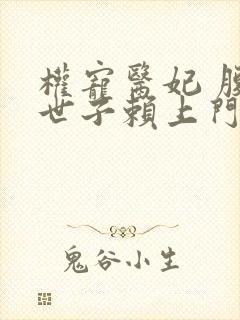 權寵醫妃
世子賴上門
鬼谷小生